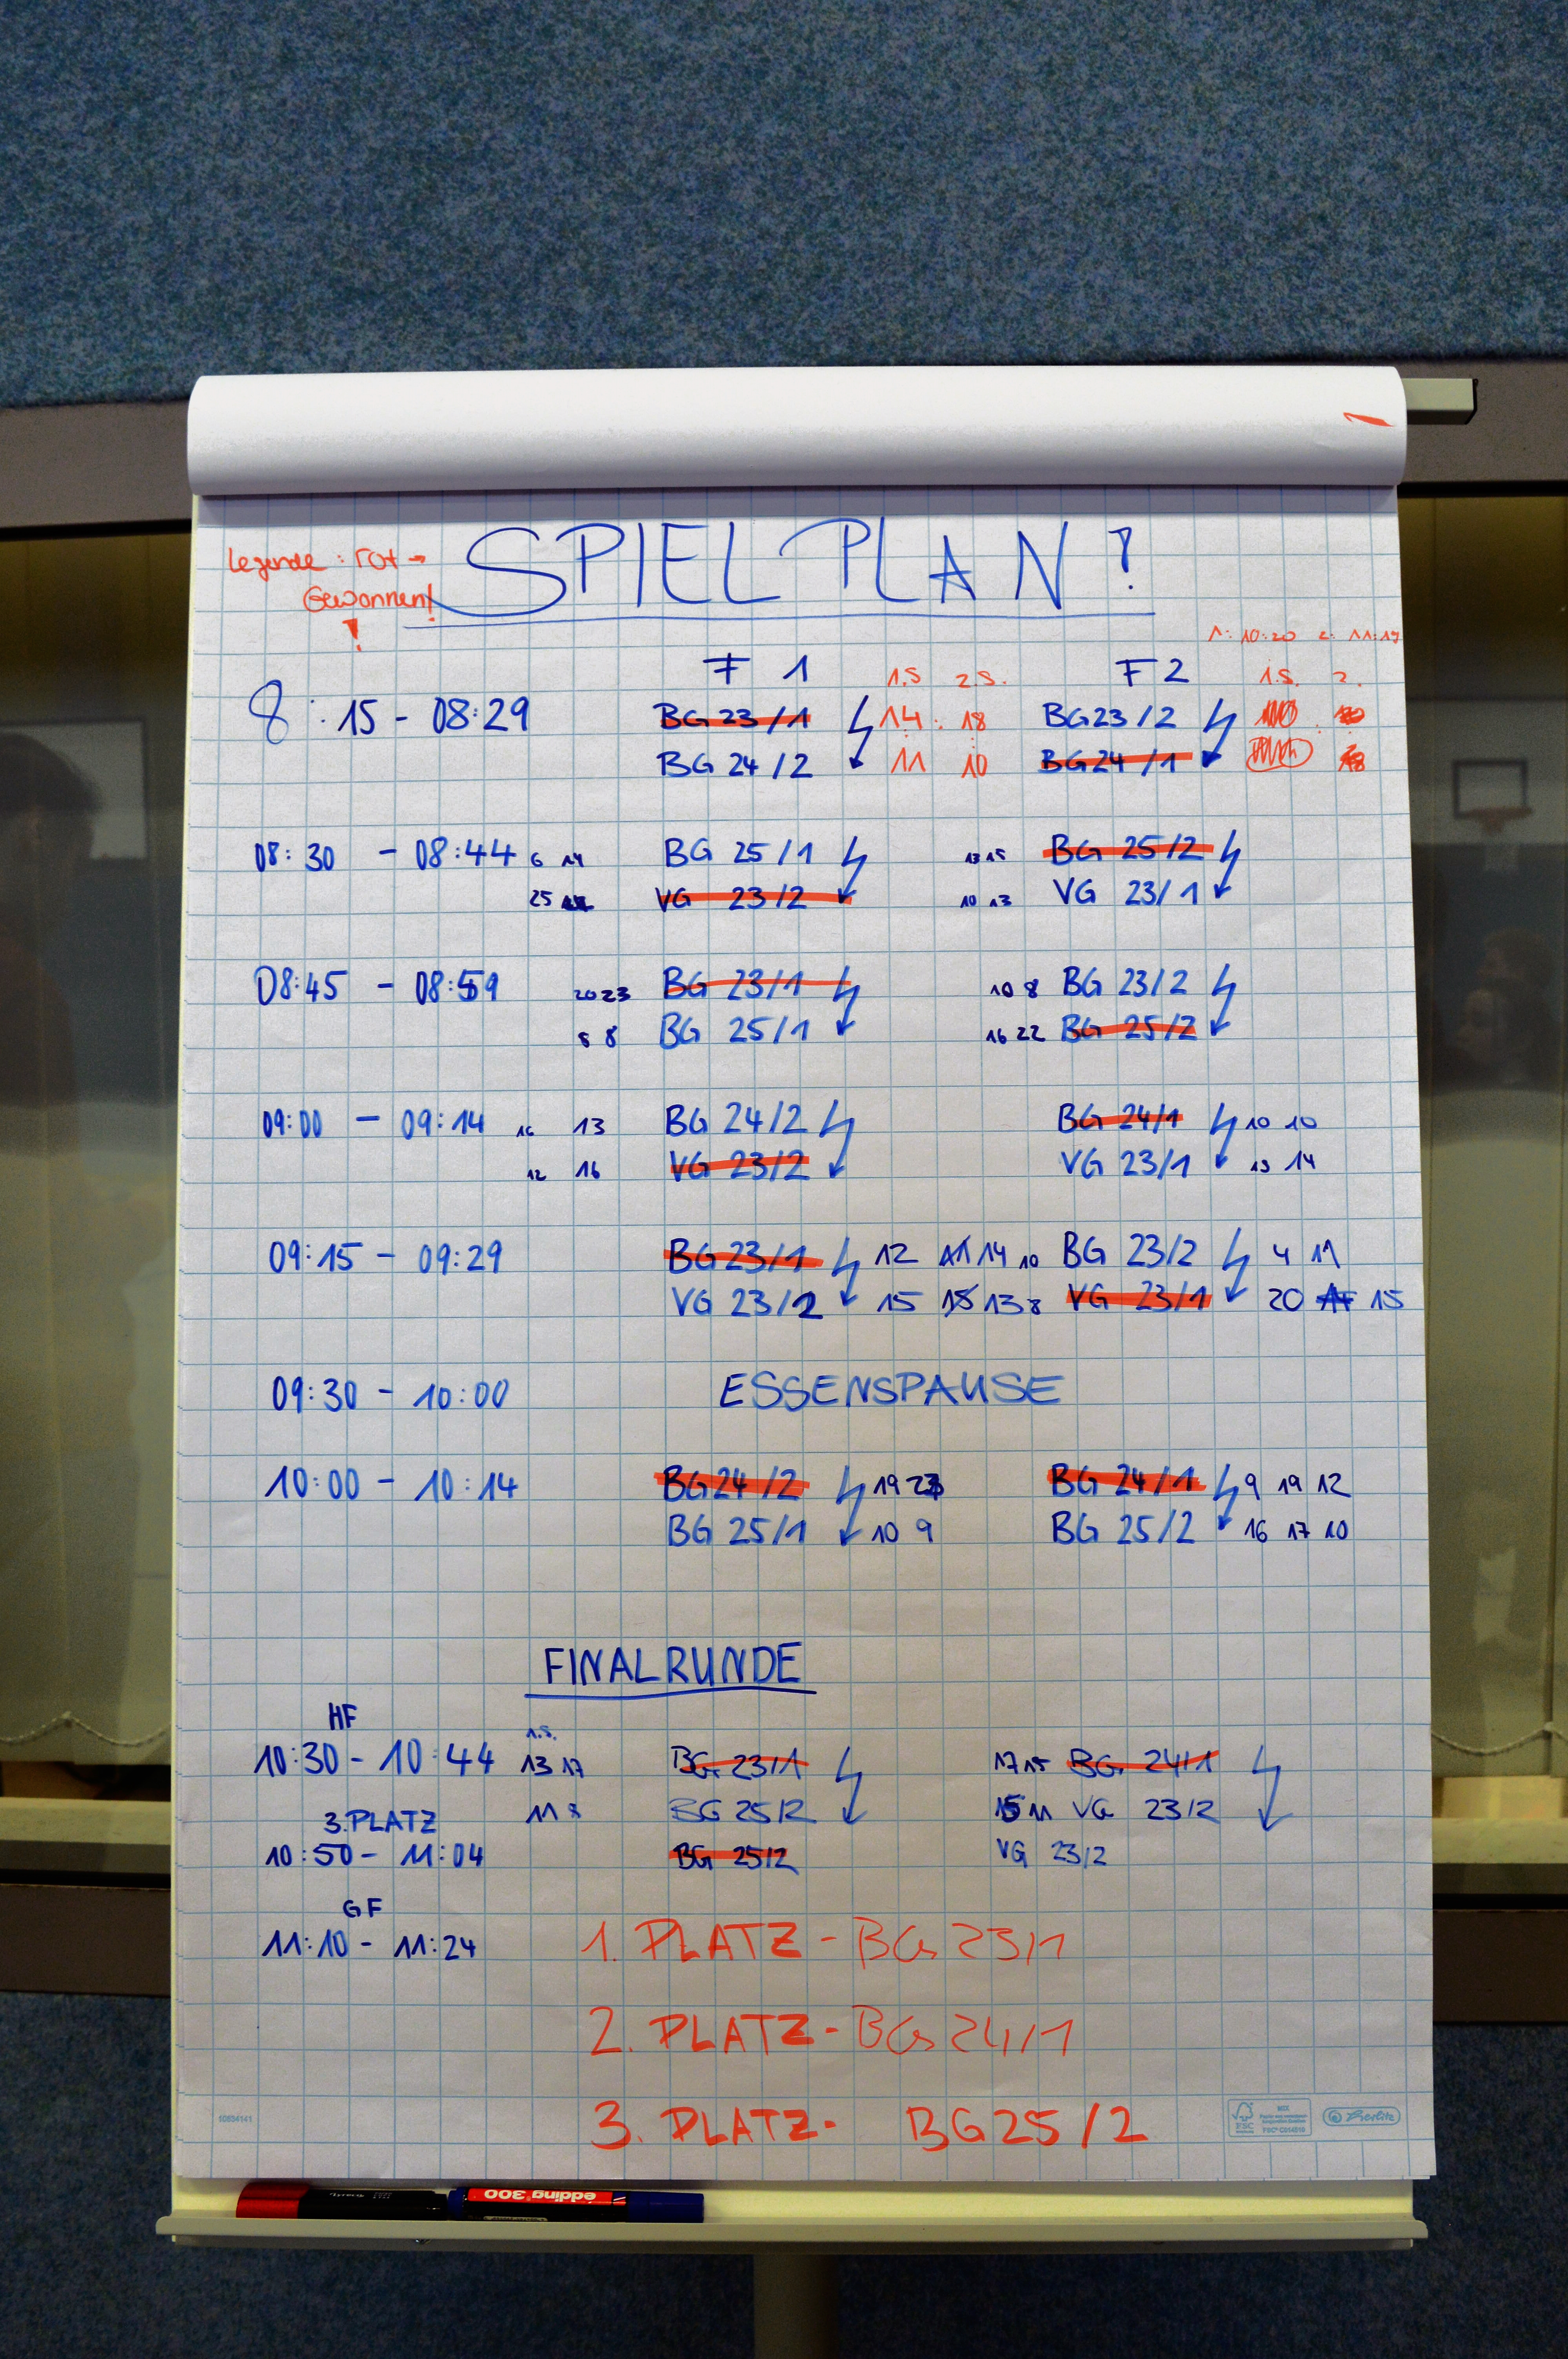 Legende: rot →
Gewonnen!
!
SPIELPLAN!
1: 10:20 2: 11:19
F 1 1.S 2.S. F2 1.S. 2.
8:15 - 08:29 BG 23/1 14 : 18 BG23/2
BG 24/2 11 10 BG24/1
08:30 - 08:44 6 14 BG 25/1 13 15 BG 25/2
25 VG 23/2 10 13 VG 23/1
08:45 - 08:59 20 23 BG 23/1 10 8 BG 23/2
8 8 BG 25/1 16 22 BG 25/2
09:00 - 09:14 16 13 BG 24/2 BG 24/1 10 10
12 16 VG 23/2 VG 23/1 13 14
09:15 - 09:29 BG 23/1 12 11 14 10 BG 23/2 4 11
VG 23/2 15 15 13 8 VG 23/1 20 15
09:30 - 10:00 ESSENSPAUSE
10:00 - 10:14 BG24/2 19 23 BG 24/1 9 19 12
BG 25/1 10 9 BG 25/2 16 17 10
FINALRUNDE
HF
1.S.
10:30 - 10:44 13 17 BG 23/1 17 15 BG 24/1
11 8 BG 25/2 15 11 VG 23/2
3.PLATZ
10:50 - 11:04 BG 25/2 VG 23/2
GF
11:10 - 11:24 1. PLATZ - BG 23/1
2. PLATZ - BG 24/1
3. PLATZ - BG 25/2
10834141
FSC
MIX
FSC® C014910
Herlitz
edding 300